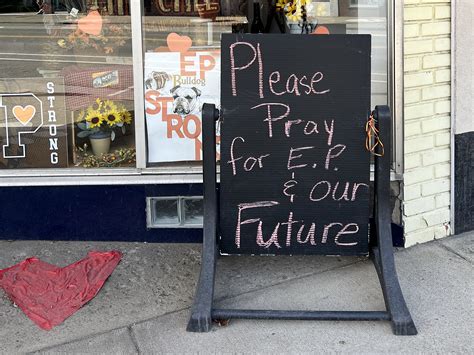 EP
Bulldog
STRONG
P
STRONG
Please
Pray
for E.P.
& our
Future